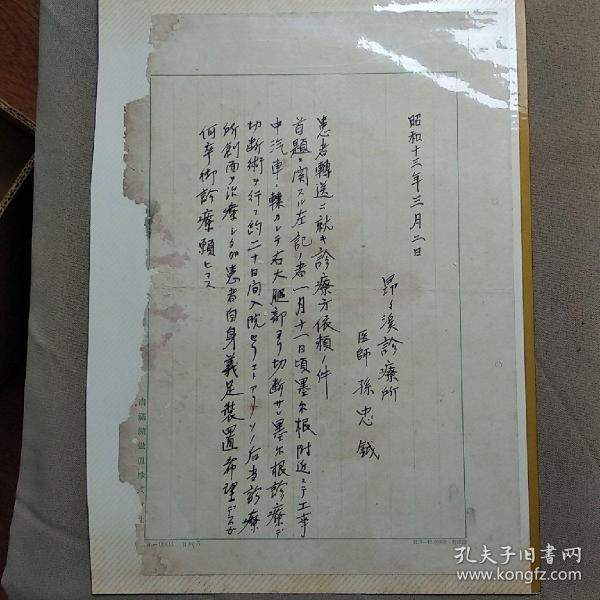 昭和十三年三月二日
昂々溪診療所
医師 孫忠鉞
患者轉送ニ就キ診療方依頼ノ件
首題ニ関スル左記ノ者一月十一日頃墨尔根附近ニテ工事
中汽車ニ轢カレテ右大腿部ヨリ切断サレ墨尔根診療デ
切断術ヲ行ヒ約二十日間入院セリ 后当診療
所創面ヲ治療シ 患者自身義足装置希望デスカ
何卒御診療願ヒマス
南満洲鉄道株式会社
孔夫子旧书网
www.kongfz.com